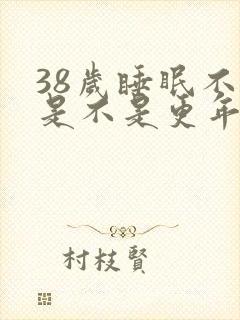 38歲睡眠不
是不是更年
村枝賢